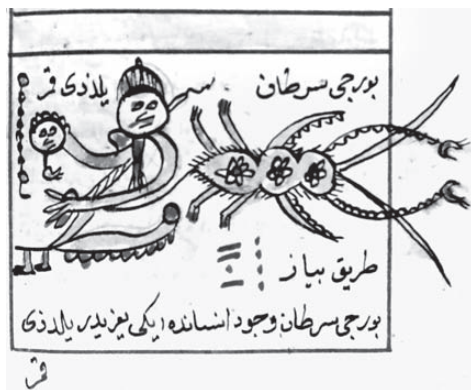 بورجی سرطان یلدذی قمر
طریق بیاز
بورجی سرطان وجود انسانده ایکی یغریدر یلدذی
قمر